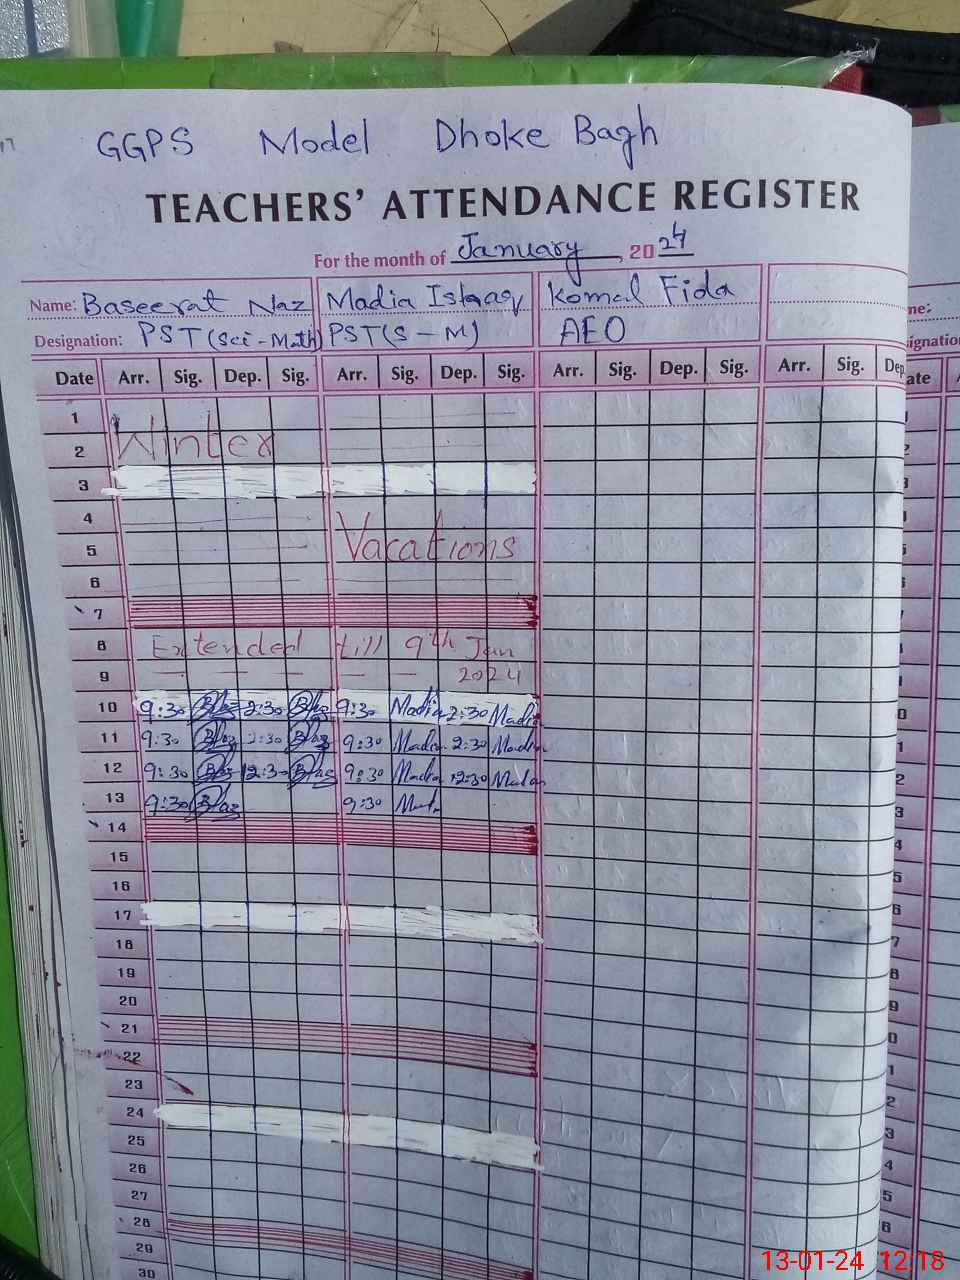 GGPS Model Dhoke Bagh
TEACHERS' ATTENDANCE REGISTER
For the month of January, 2024
Name: Baseerat Naz Madia Ishaq Komal Fida
Designation: PST (Sci - Math) PST (S - M) AEO
Date Arr. Sig. Dep. Sig. Arr. Sig. Dep. Sig. Arr. Sig. Dep. Sig. Arr. Sig. Dep.
1
2 Winter
3
4
5 Vacations
6
7
8 Extended till 9th Jan
9 2024
10 9:30 2:30 9:30 Madia 2:30 Madia
11 9:30 2:30 9:30 Madia 2:30 Madia
12 9:30 12:30 9:30 Madia 12:30 Madia
13 9:30 9:30
14
15
16
17
18
19
20
21
22
23
24
25
26
27
28
29
30
13-01-24 12:18